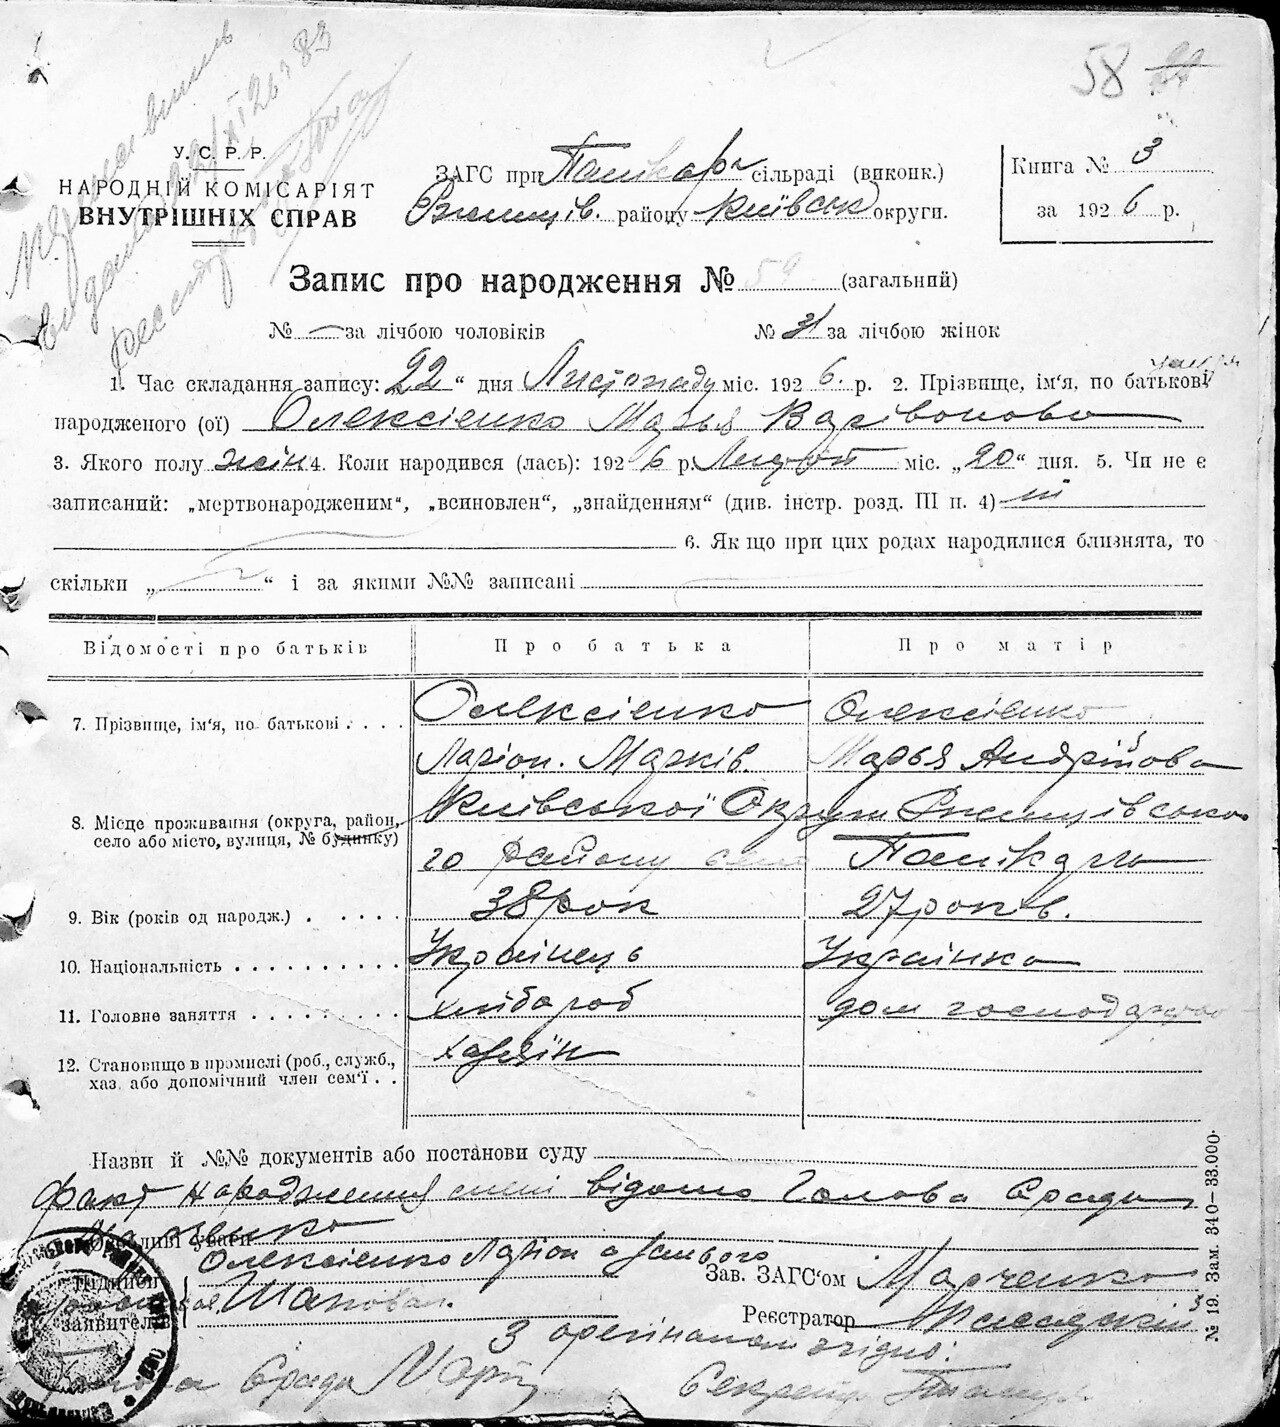 58
У. С. Р. Р.
НАРОДНІЙ КОМІСАРІЯТ
ВНУТРІШНІХ СПРАВ
ЗАГС при Панікарч сільраді (виконк.)
Ржищів. району Київськ округи.
Книга № 3
за 1926 р.
Запис про народження № 59 (загальний)
№ — за лічбою чоловіків № 31 за лічбою жінок
1. Час складання запису: „22“ дня Листопаду міс. 1926. р. 2. Прізвище, ім'я, по батькові
народженого (ої) Олексієнко Марья Варівонова
3. Якого полу жін 4. Коли народився (лась): 1926 р. Лютой міс. „20“ дня. 5. Чи не є
записаний: „мертвонародженим“, „всиновлен“, „знайденням“ (див. інстр. розд. III п. 4) ні
6. Як що при цих родах народилися близнята, то
скільки „ “ і за якими №№ записані
Відомості про батьків Про батька Про матір
7. Прізвище, ім'я, по батькові . . . . Олексієнко Олексієнко
Ларіон. Марків. Марья Андрійова
8. Місце проживання (округа, район, село або місто, вулиця, № будинку) Київської Округи Ржищівсько
го району село Панікарч
9. Вік (років од народж.) . . . . . 38 рок 27 років.
10. Національність . . . . . . . . . . Українець Українка
11. Головне заняття . . . . . . . . . хлібороб дом господарство
12. Становище в промислі (роб., служб., хаз. або допомічний член сем'ї . . хазяїн
Назви й №№ документів або постанови суду
Факт народження мені відомо Голова Сради
Особливі уваги
Олексієнко Ларіон а за нього
Підписи
заявителів Шаповал.
Зав. ЗАГС'ом Марченко
Реєстратор
З орегіналом згідно:
Голова Сради Секретар
№ 19. Зам. 340—33.000.